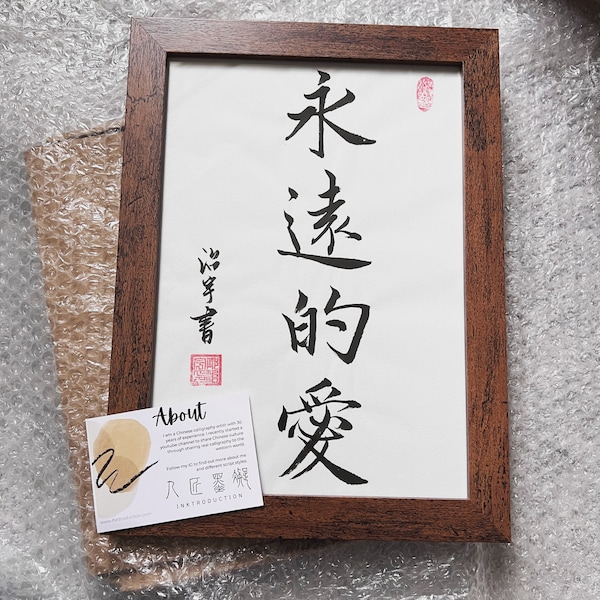 永遠的愛
治宇書
About
I am a Chinese calligraphy artist with 30
years of experience. I recently started a
youtube channel to share Chinese culture
through sharing real calligraphy to the
western world.
Follow my IG to find out more about me
and different script styles.
INKTRODUCTION